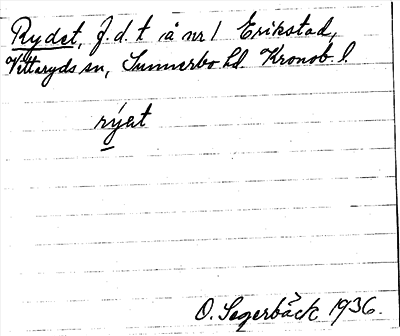 Rydet, f.d. t å nr 1 Erikstad,
Vittaryds sn, Sunnerbo hd. Kronob. l.
rýət
O. Segerbäck 1936.